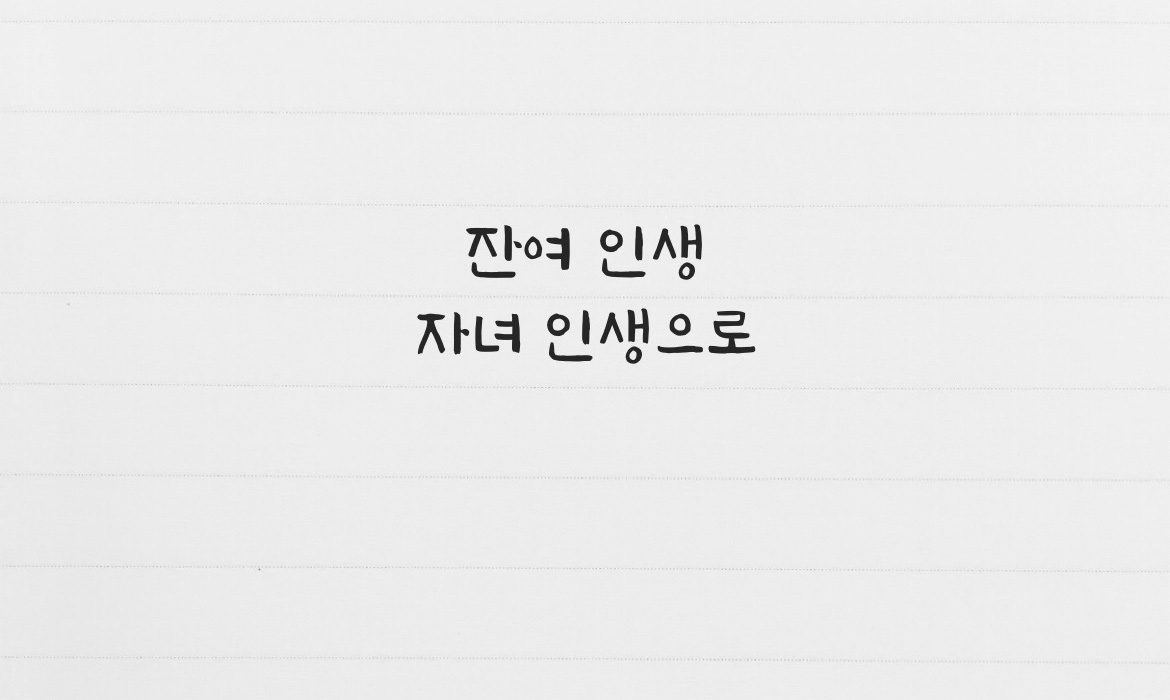 잔여 인생
자녀 인생으로